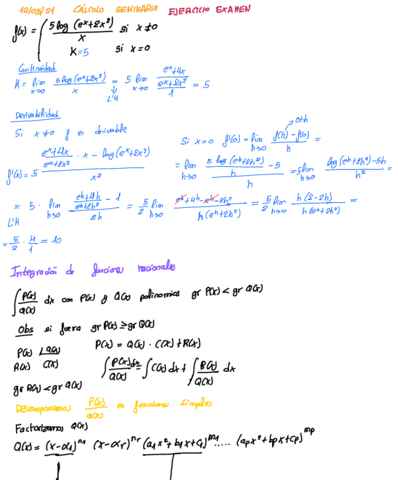 12/05/21 CÁLCULO SEMINARIO EJERCICIO EXAMEN
f(x) = { 5 log(e^x+2x²) / x si x≠0
K=5 si x=0
Continuidad
K = lim x→0 5 log(e^x+2x²) / x = L'H 5 lim x→0 (e^x+4x / e^x+2x²) / 1 = 5
Derivabilidad
Si x≠0 f es derivable
Si x=0 f'(0) = lim h→0 f(h) - f(0) / h =
f'(x) = 5 (e^x+4x / e^x+2x² · x - log(e^x+2x²)) / x²
= lim h→0 (5 log(e^h+2h²) / h - 5) / h =
= 5 · lim h→0 (e^h+4h / e^h+2h² - 1) / 2h = 5/2 lim h→0 e^h+4h-e^h-2h² / h(e^h+2h²) = 5/2 lim h→0 h(2-2h) / h(e^h+2h²) =
L'H
= 5/2 · 4/1 = 10
Integración de funciones racionales
∫ P(x)/Q(x) dx con P(x) y Q(x) polinomios gr P(x) < gr Q(x)
Obs si fuera gr P(x) ≥ gr Q(x)
P(x) | Q(x) P(x) = Q(x) · C(x) + R(x)
R(x) C(x) ∫ P(x)/Q(x) dx = ∫ C(x) dx + ∫ R(x)/Q(x) dx
gr R(x) < gr Q(x)
Descomponemos P(x)/Q(x) en fracciones simples
Factorizamos Q(x)
Q(x) = (x-α₁)^n₁ (x-αr)^nr (a₁x²+b₁x+c₁)^m₁ .... (apx²+bpx+cp)^mp